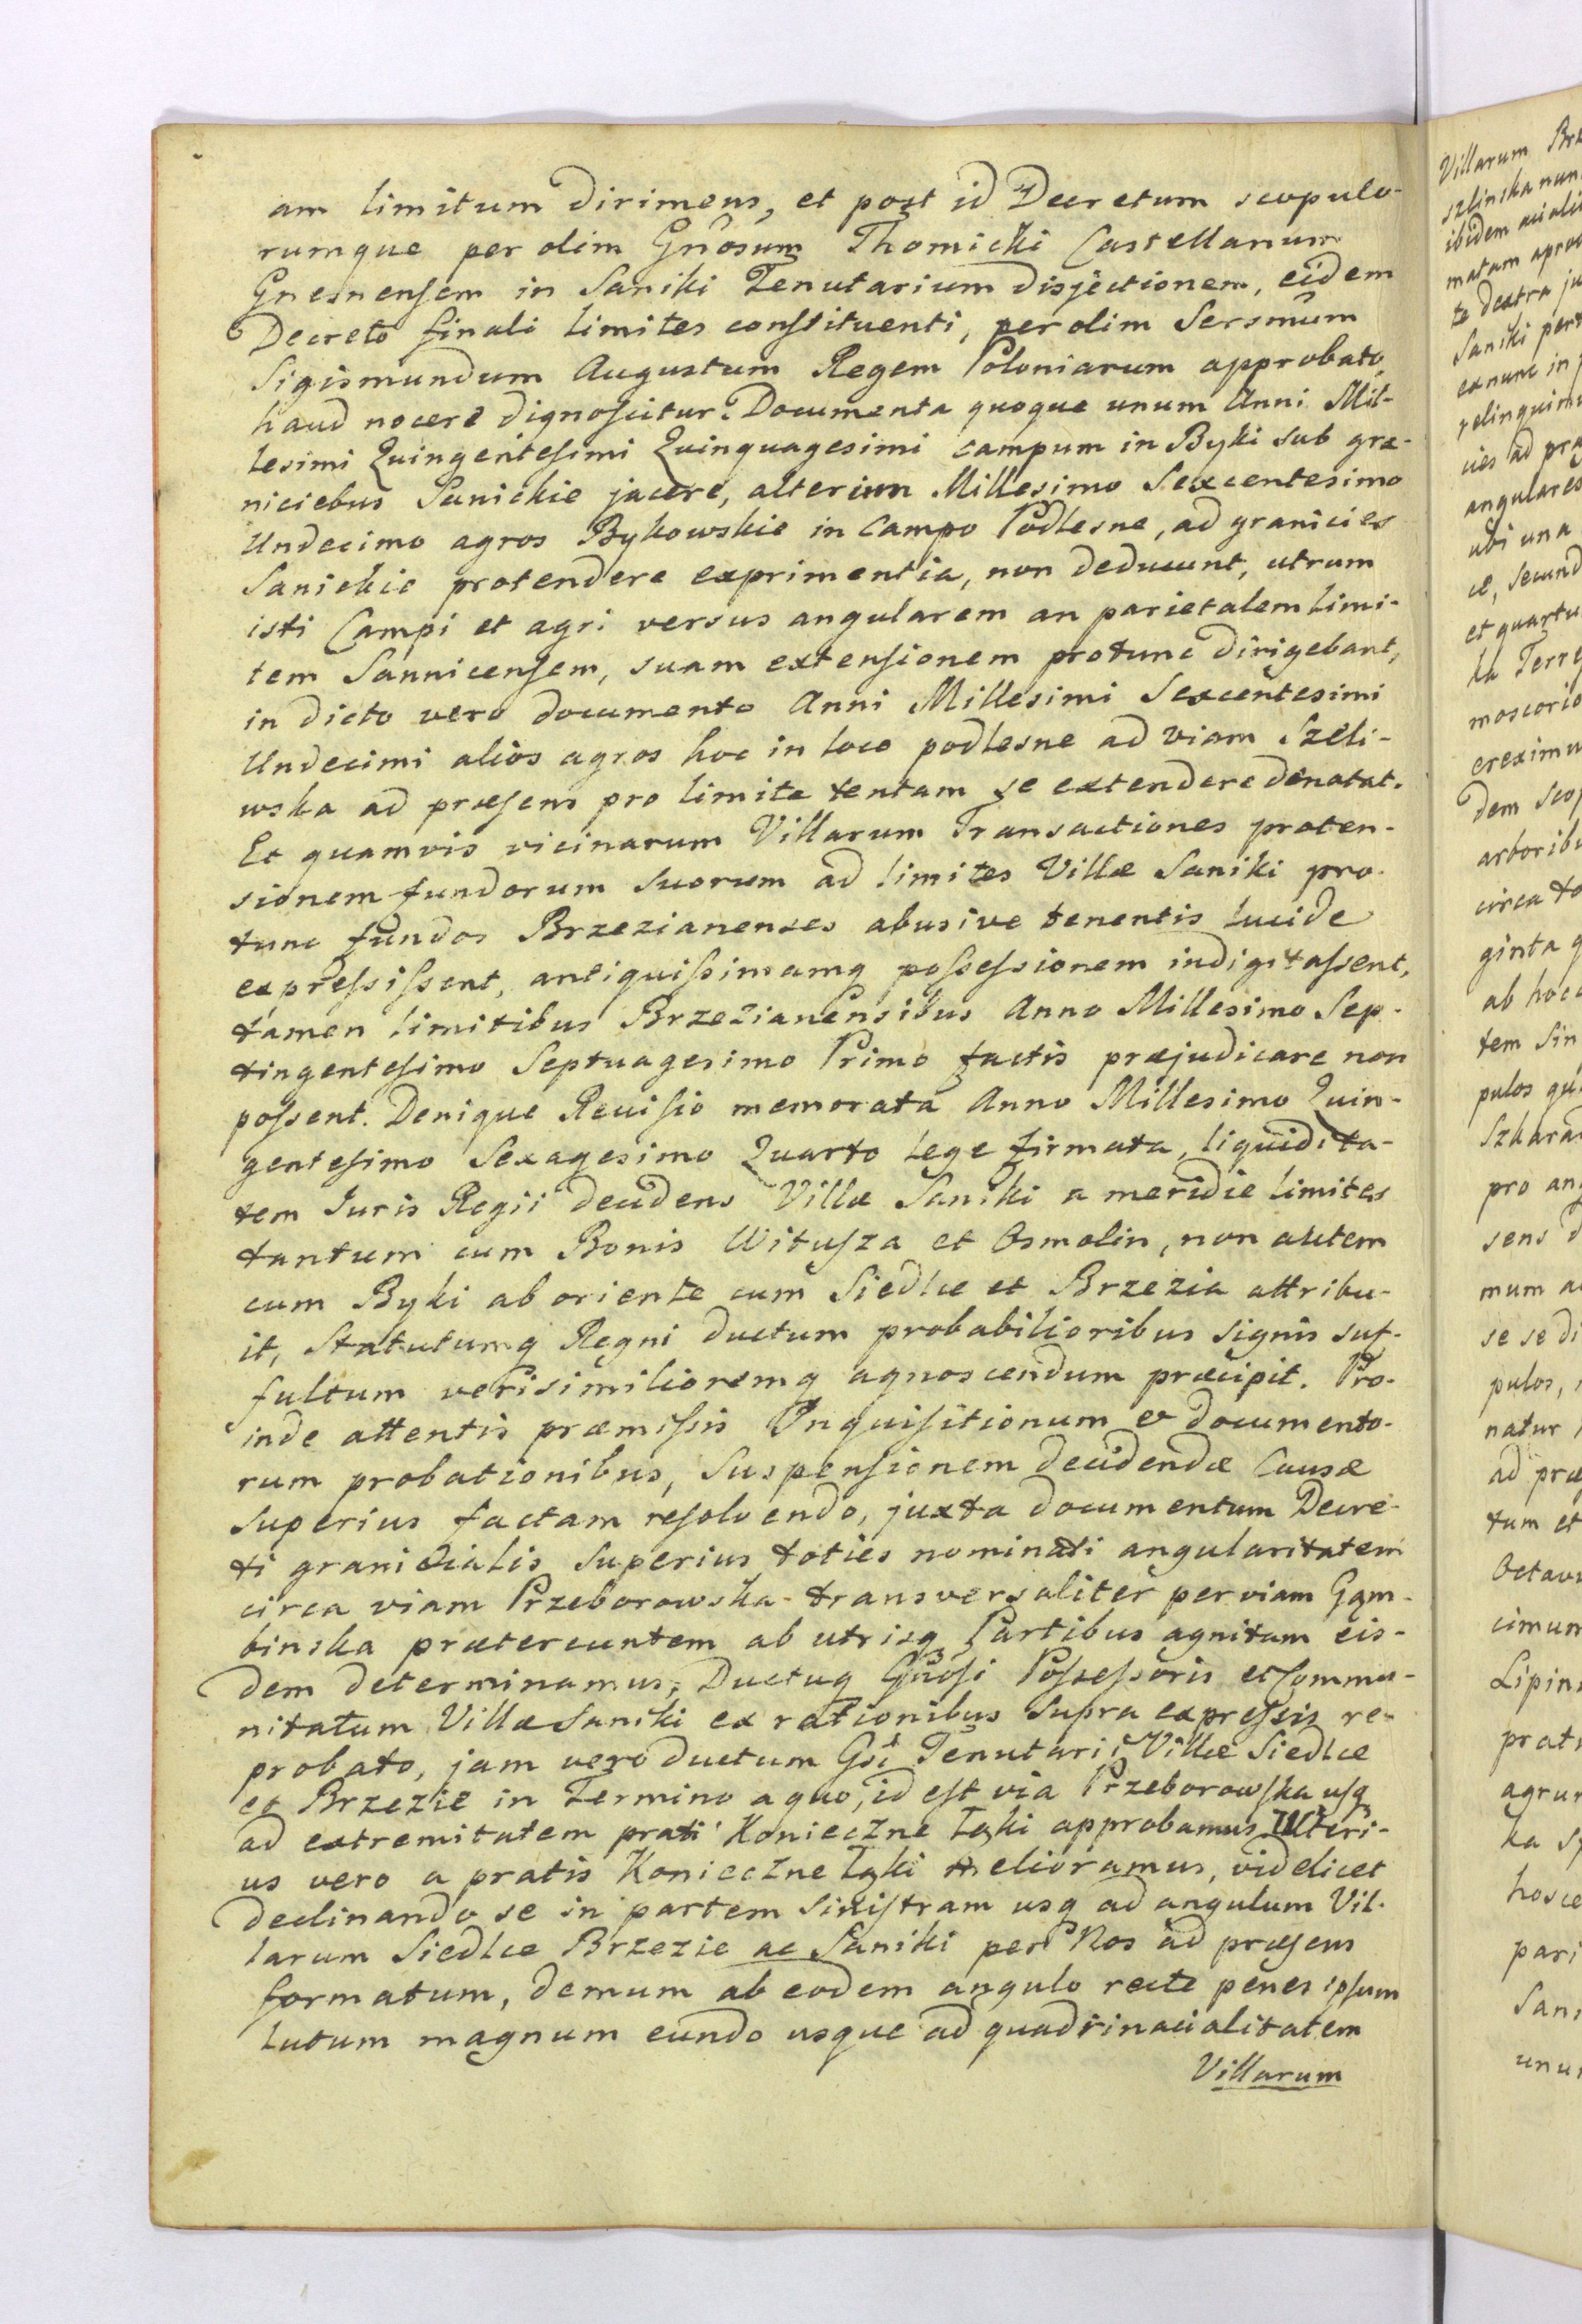 am limitum dirimens, et post id Decretum scopulo-
rumque per olim Gnôsum Thomicki Castellanum
Gnesnensem in Saniki Tenutarium disjectionem, eidem
Decreto finali limites constituenti, per olim Sersmum
Sigismundum Augustum Regem Poloniarum approbato,
haud nocere dignoscitur. Documenta quoque unum Anni Mil-
lesimi Quingentesimi Quinquagesimi campum in Byki sub gra-
niciebus Sanickie jacere, alterum Millesimo Sexcentesimo
Undecimo agros Bykowskie in Campo Podlesne, ad granicies
Sanickie protendere exprimentia, non deducunt, utrum
isti Campi et agri versus angularem an parietalem limi-
tem Sannicensem, suam extensionem protunc dirigebant,
in dicto vero documento Anni Millesimi Sexcentesimi
Undecimi alios agros hoc in loco podlesne ad viam Szeli-
wska ad præsens pro limite tentam se extendere denotat.
Et quamvis vicinarum Villarum Transactiones proten-
sionem fundorum suorum ad limites Villæ Saniki pro-
tunc fundos Brzezianenses abusive tenentis lucide
expressissent, antiquissimamq possessionem indigitassent,
tamen limitibus Brzezianensibus Anno Millesimo Sep-
tingentesimo Septuagesimo Primo factis præjudicare non
possent. Denique Revisio memorata Anno Millesimo Quin-
gentesimo Sexagesimo Quarto lege firmata, liquidita-
tem Juris Regii decidens Villæ Saniki a meridie limites
tantum cum Bonis Witusza et Osmolin, non autem
cum Byki ab oriente cum Siedlce et Brzezia attribu-
it, Statutumq Regni ductum probabilioribus signis suf-
fultum verisimilioremq agnoscendum præcipit. Pro-
inde attentis præmissis Inquisitionum et documento-
rum probationibus, Suspensionem decidendæ Causæ
superius factam resolvendo, juxta documentum Decre-
ti granicialis superius toties nominati angularitatem
circa viam Przeborowska transversaliter per viam Gąm-
binska prætereuntem ab utrisq Partibus agnitam eis-
dem determinamus, Ductuq Gnosi Possessoris et Commu-
nitatum Villæ Saniki ex rationibus supra expressis re-
probato, jam vero ductum Gsi Tenutarii Villæ Siedlce
et Brzezie in Termino a quo, id est via Przeborowska usq
ad extremitatem prati Konieczne Łąki approbamus Ulteri-
us vero a pratis Konieczne Łąki melioramus, videlicet
declinando se in partem sinistram usq ad angulum Vil-
larum Siedlce Brzezie ac Saniki per Nos ad præsens
formatum, demum ab eodem angulo recte penes ipsum
lutum magnum eundo usque ad quadrinacialitatem
Villarum
Villarum
szlinska nun
ibidem
matam
te dextra
Saniki
ex nunc in
relinquim
cies ad
angulares
ubi una
et quartu
ka
ereximu
dem
arborib
circa
ginta
ab
tem Sin
pulos
pro an
sens
mum
se se di
pulos,
natur
ad præ
tum et
Octav
cimum
Lipin
prat
ka
hosce
pari
San
unu